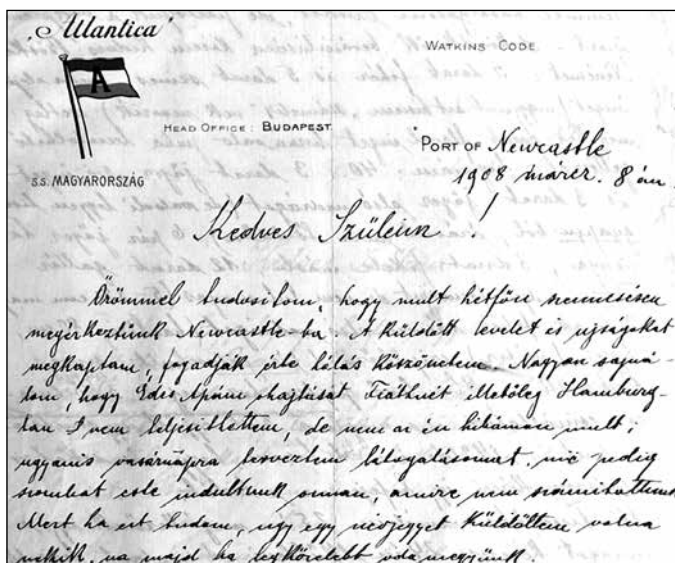 „Atlantica"
WATKINS CODE.
A
HEAD OFFICE: BUDAPEST.
PORT OF Newcastle
S.S. MAGYARORSZÁG
1908 márcz. 8 án.
Kedves Szüleim!
Örömmel tudositom, hogy mult hétfőn szerencsésen
megérkeztünk Newcastle-ba. A küldött levelet és ujságokat
megkaptam, fogadják érte hálás köszönetem. Nagyon sajná-
lom, hogy Édes Apám óhajtását illetőleg Hamburg-
ban nem teljesitettem, de nem az én hibámon mult;
ugyanis vasárnapra terveztem látogatásomat, mig pedig
szombat este indultunk onnan, amire nem számitottunk.
Mert ha ezt tudom, ugy egy névjegyet küldöttem volna
nekik, na majd ha legközelebb oda megyünk.